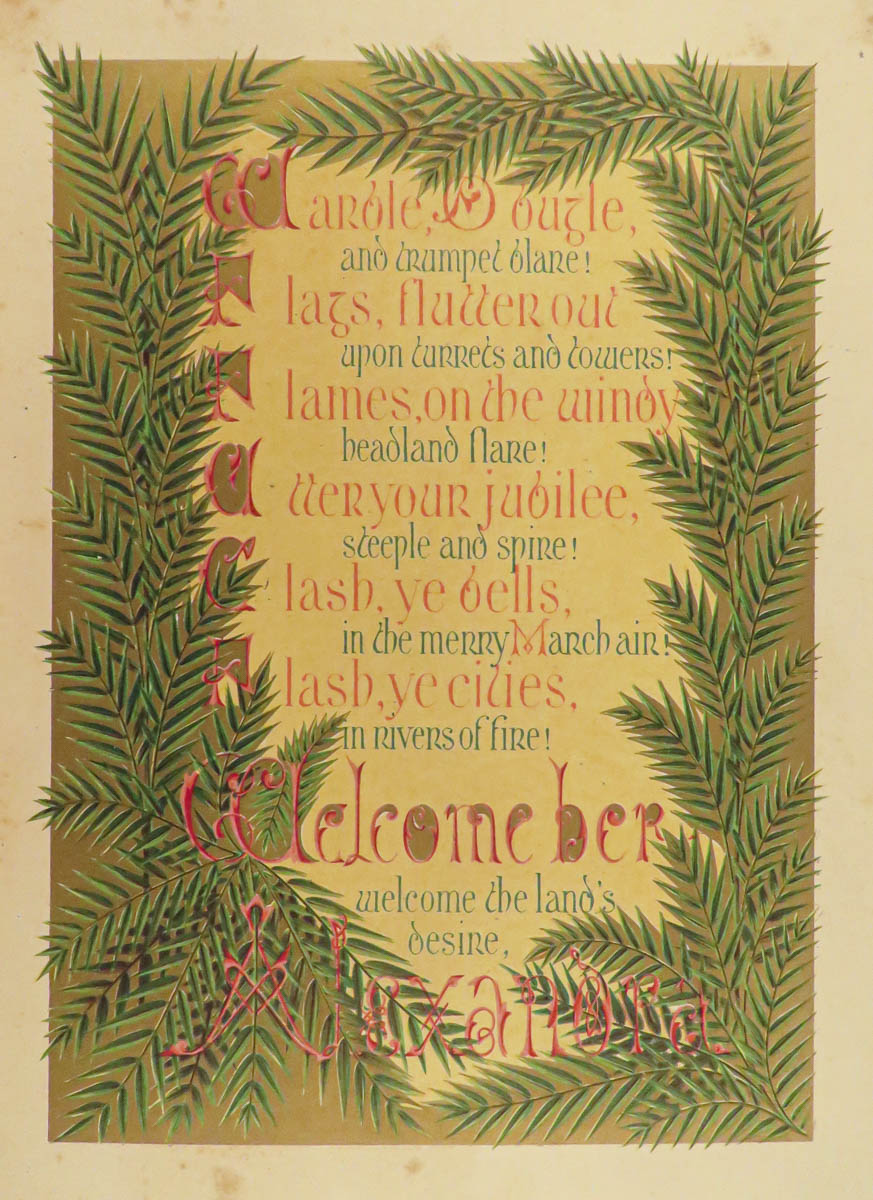 Warble, O bugle,
and trumpet blare!
Flags, flutter out
upon turrets and towers!
Flames, on the windy
headland flare!
Utter your jubilee,
steeple and spire!
Clash, ye bells,
in the merry March air!
Flash, ye cities,
in rivers of fire!
Welcome her
welcome the land's
desire,
Alexandra